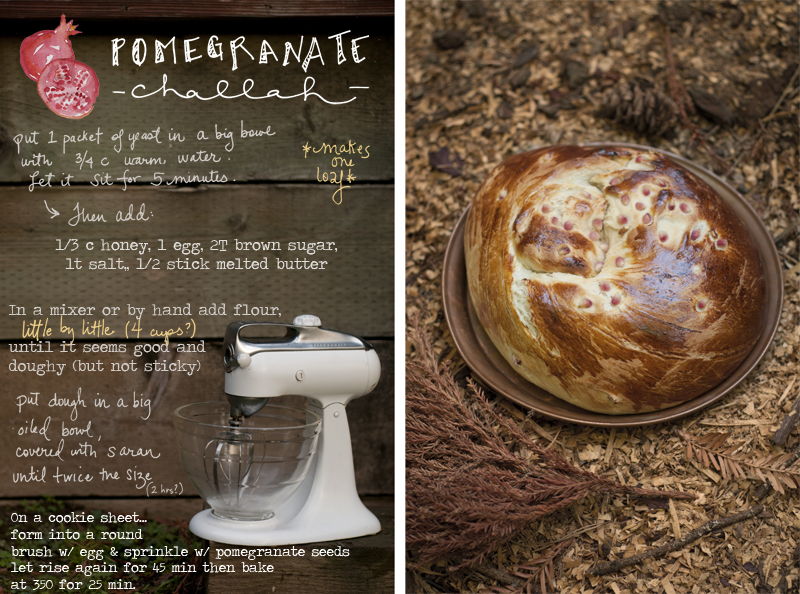 POMEGRANATE
-challah-
put 1 packet of yeast in a big bowl
with 3/4 c warm water.
Let it sit for 5 minutes.
*makes
one
loaf*
Then add:
1/3 c honey, 1 egg, 2T brown sugar,
1t salt,, 1/2 stick melted butter
In a mixer or by hand add flour,
little by little (4 cups?)
until it seems good and
doughy (but not sticky)
put dough in a big
oiled bowl,
covered with saran
until twice the size
(2 hrs?)
On a cookie sheet...
form into a round
brush w/ egg & sprinkle w/ pomegranate seeds
let rise again for 45 min then bake
at 350 for 25 min.